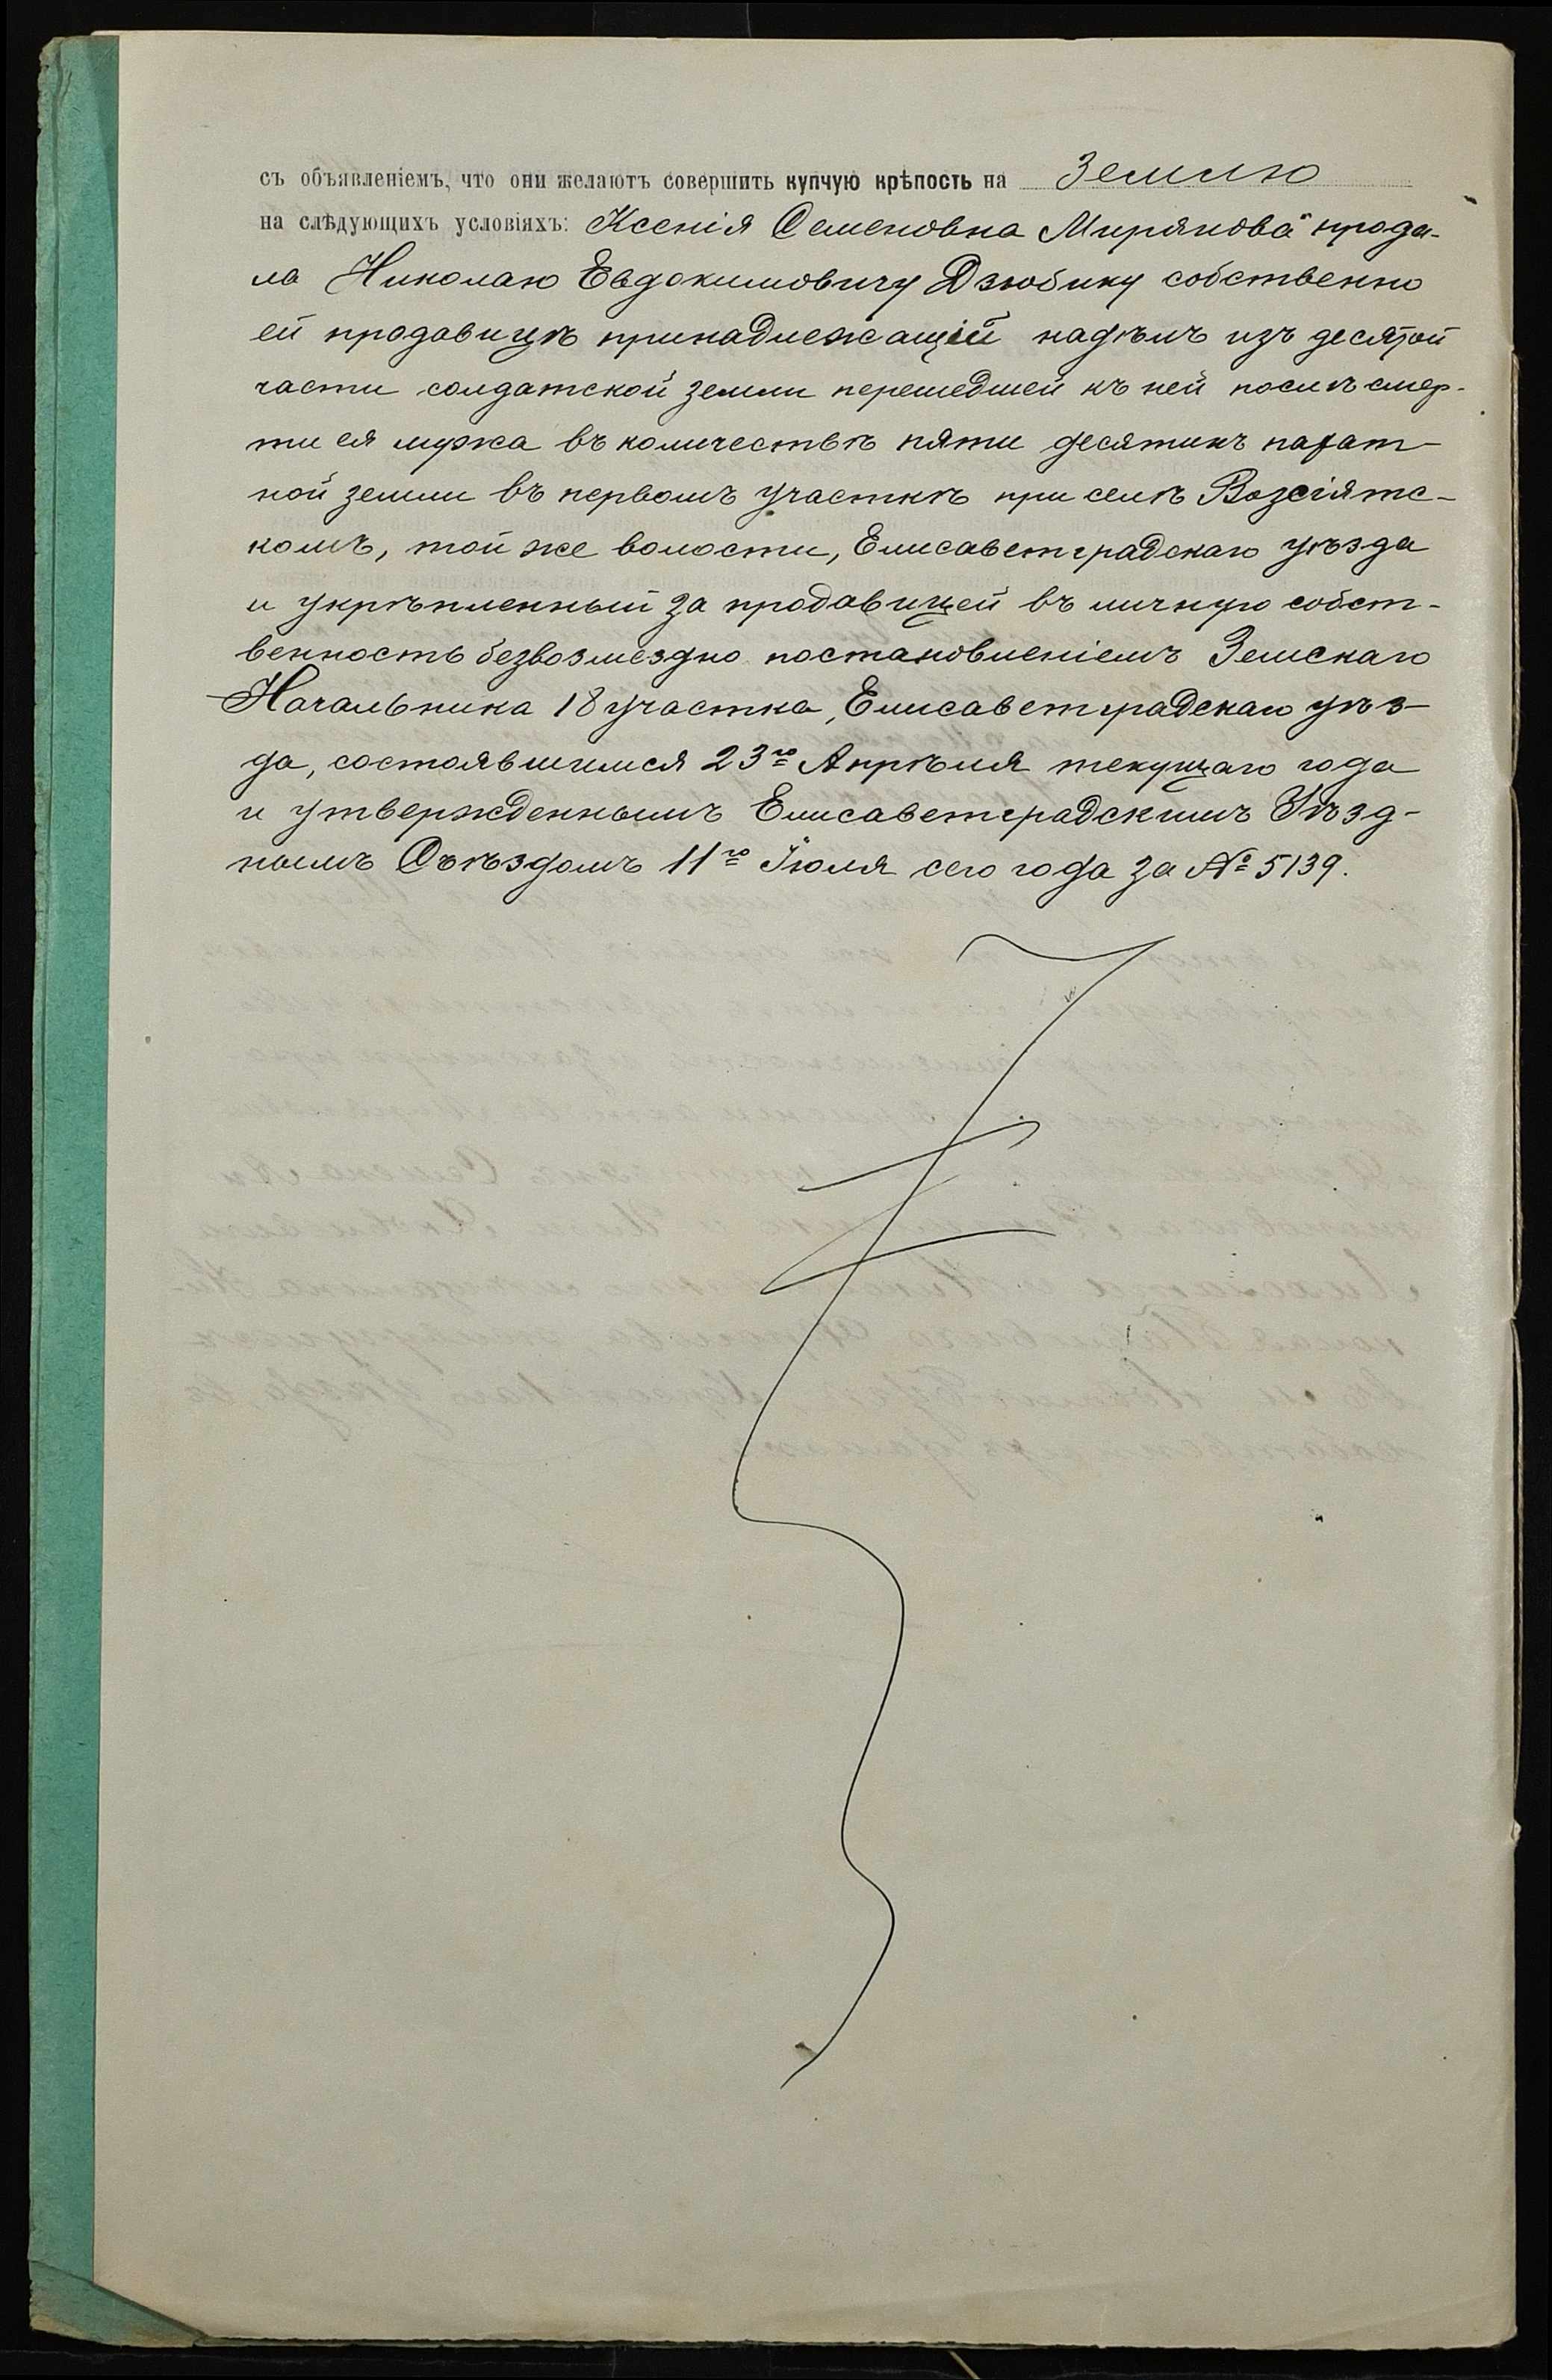 съ объявленіемъ, что они желаютъ совершить купчую крѣпость на землю
на слѣдующихъ условіяхъ: Ксенія Семеновна Мирянова прода-
ла Николаю Евдокимовичу Дзюбику собственно
ей продавицѣ принадлежащій надѣлъ изъ десятой
части солдатской земли перешедшей къ ней послѣ смер-
ти ея мужа въ количествѣ пяти десятинъ пахат-
ной земли въ первомъ участкѣ при селѣ Возсіятс-
комъ, той же волости, Елисаветградскаго уѣзда
и укрѣпленный за продавицей въ личную собст-
венность безвозмездно постановленіемъ Земскаго
Начальника 18 участка, Елисаветградскаго уѣз-
да, состоявшимся 23го Апрѣля текущаго года
и утвержденнымъ Елисаветградскимъ Уѣзд-
нымъ Съѣздомъ 11го Іюля сего года за № 5139.